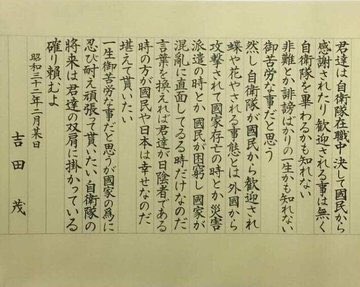 君達は自衛隊在職中決して国民から
感謝されたり歓迎される事は無く
自衛隊を畢わるかも知れない
非難とか誹謗ばかりの一生かも知れない
御苦労な事だと思う
然し自衛隊が國民から歓迎され
蝶や花やされる事態とは外國から
攻撃されて國家存亡の時とか災害
派遣の時とか國民が困窮し國家が
混亂に直面してゐる時だけなのだ
言葉を換えれば君達が日陰者である
時の方が國民や日本は幸せなのだ
堪えて貰いたい
一生御苦労な事だと思うが國家の為に
忍び耐え頑張って貰いたい自衛隊の
将来は君達の双肩に掛かっている
確り頼むよ
昭和三十二年二月某日
吉田 茂